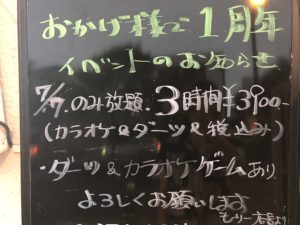 おかげ様で1周年
イベントのお知らせ
7/7.のみ放題.3時間¥3900-
(カラオケ&ダーツ&税込み)
・ダーツ&カラオケゲームあり
よろしくお願いします